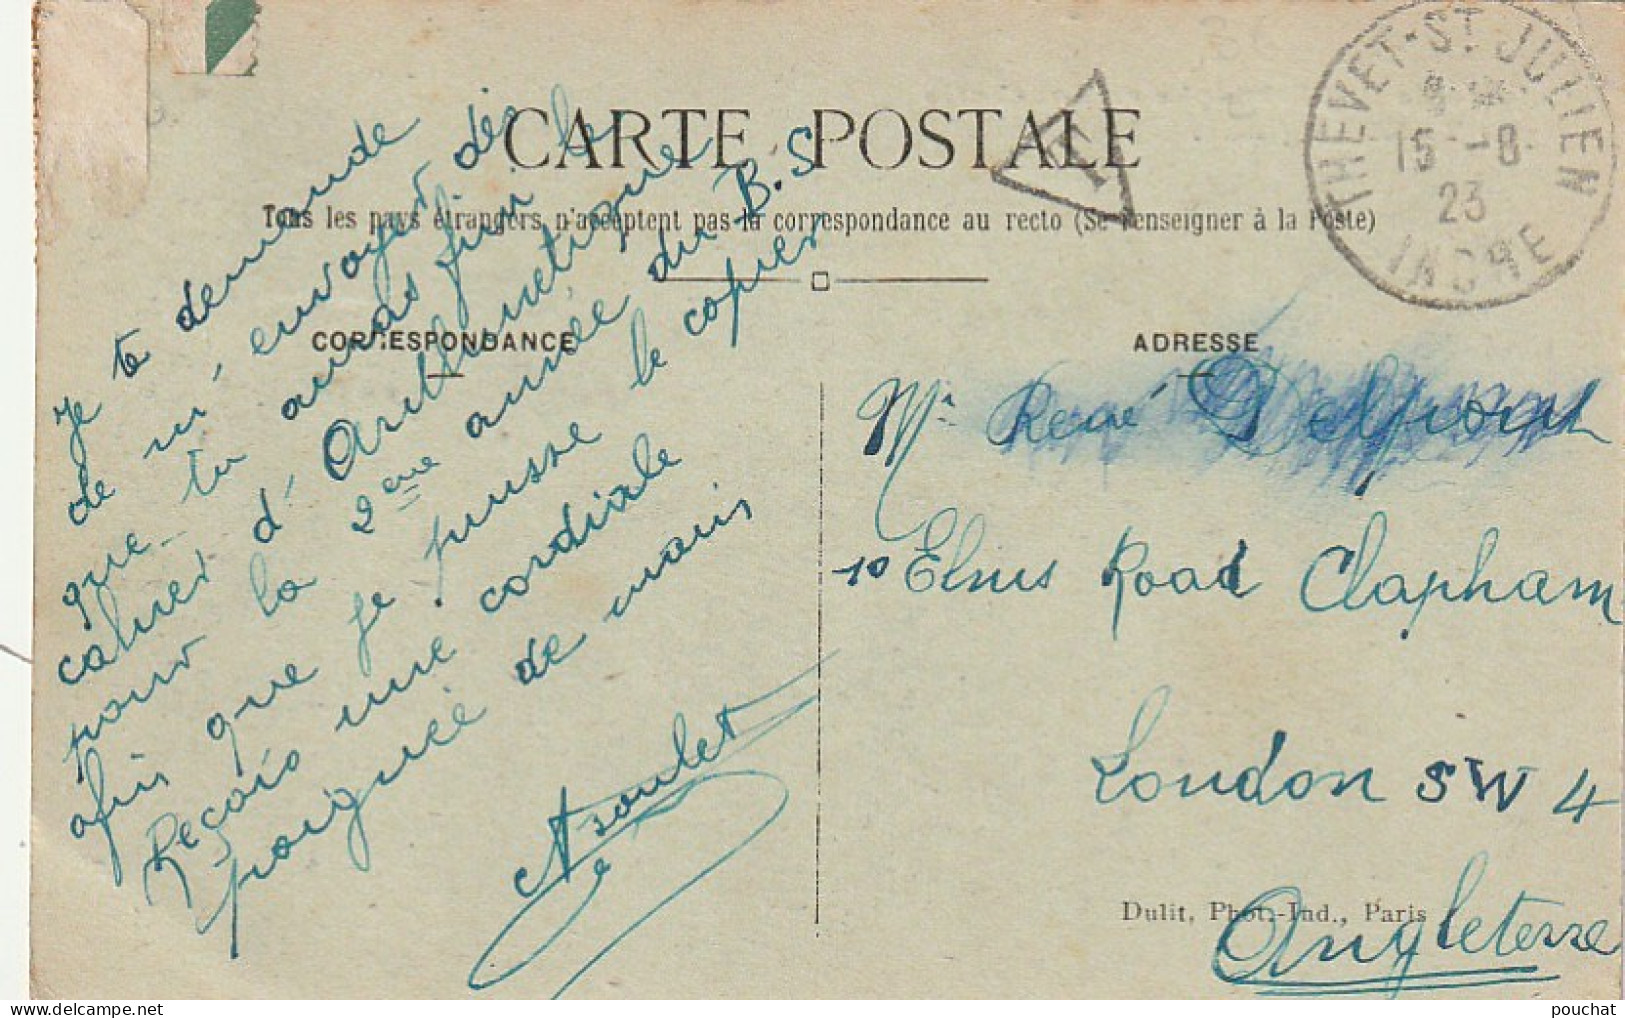 CARTE POSTALE
Tous les pays étrangers n'acceptent pas la correspondance au recto (Se renseigner à la Poste)
THEVET-ST JULIEN
15-8
23
INDRE
T
CORRESPONDANCE
Je te demande
de m'envoyer dès
que tu auras fini le
cahier d'Arithmétique
pour la 2ème année du B.S
afin que je puisse le copier
Reçois une cordiale
poignée de main
Asoulet
ADRESSE
Mr René
10 Elms Road Clapham
London SW 4
Angleterre
Dulit, Phot.-Ind., Paris
pouchat